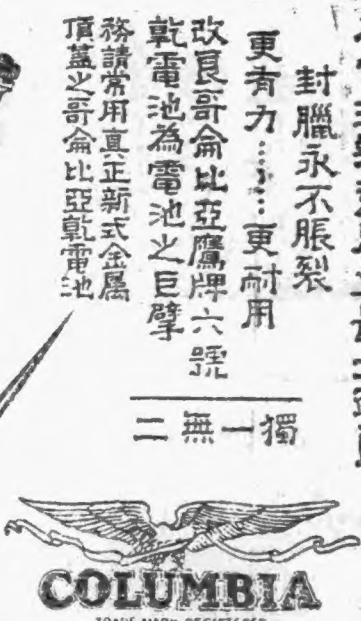 封臘永不脹裂
更有力……更耐用
改良哥侖比亞鷹牌六號
乾電池為電池之巨擘
務請常用真正新式金属
頂蓋之哥侖比亞乾電池
獨一無二
COLUMBIA
TRADE MARK REGISTERED